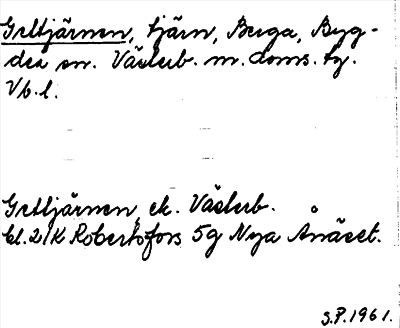 Gettjärnen, tjärn, Berga, Byg-
deå sn. Västerb. m. doms. tg.
Vb. l.
Gettjärnen, ek. Västerb.
bl. 21K Robertsfors 5g Nya Ånäset.
S.P. 1961.